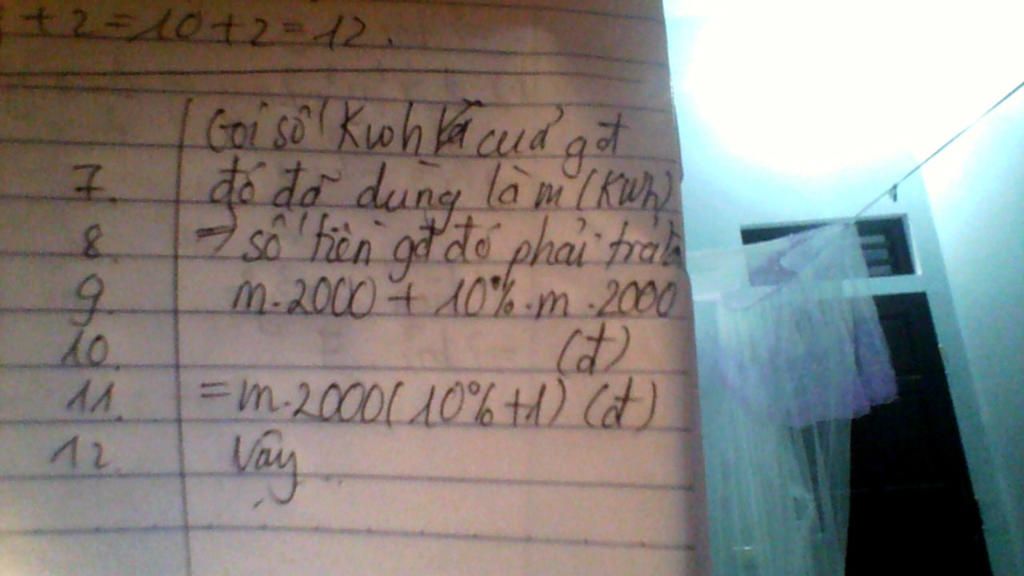 + 2 = 10 + 2 = 12.
Gọi số Kwh của gđ
7. đó đã dùng là m (Kwh)
8. => số tiền gđ đó phải trả
9. m.2000 + 10%.m.2000
10. (đ)
11. = m.2000(10%+1) (đ)
12. Vậy